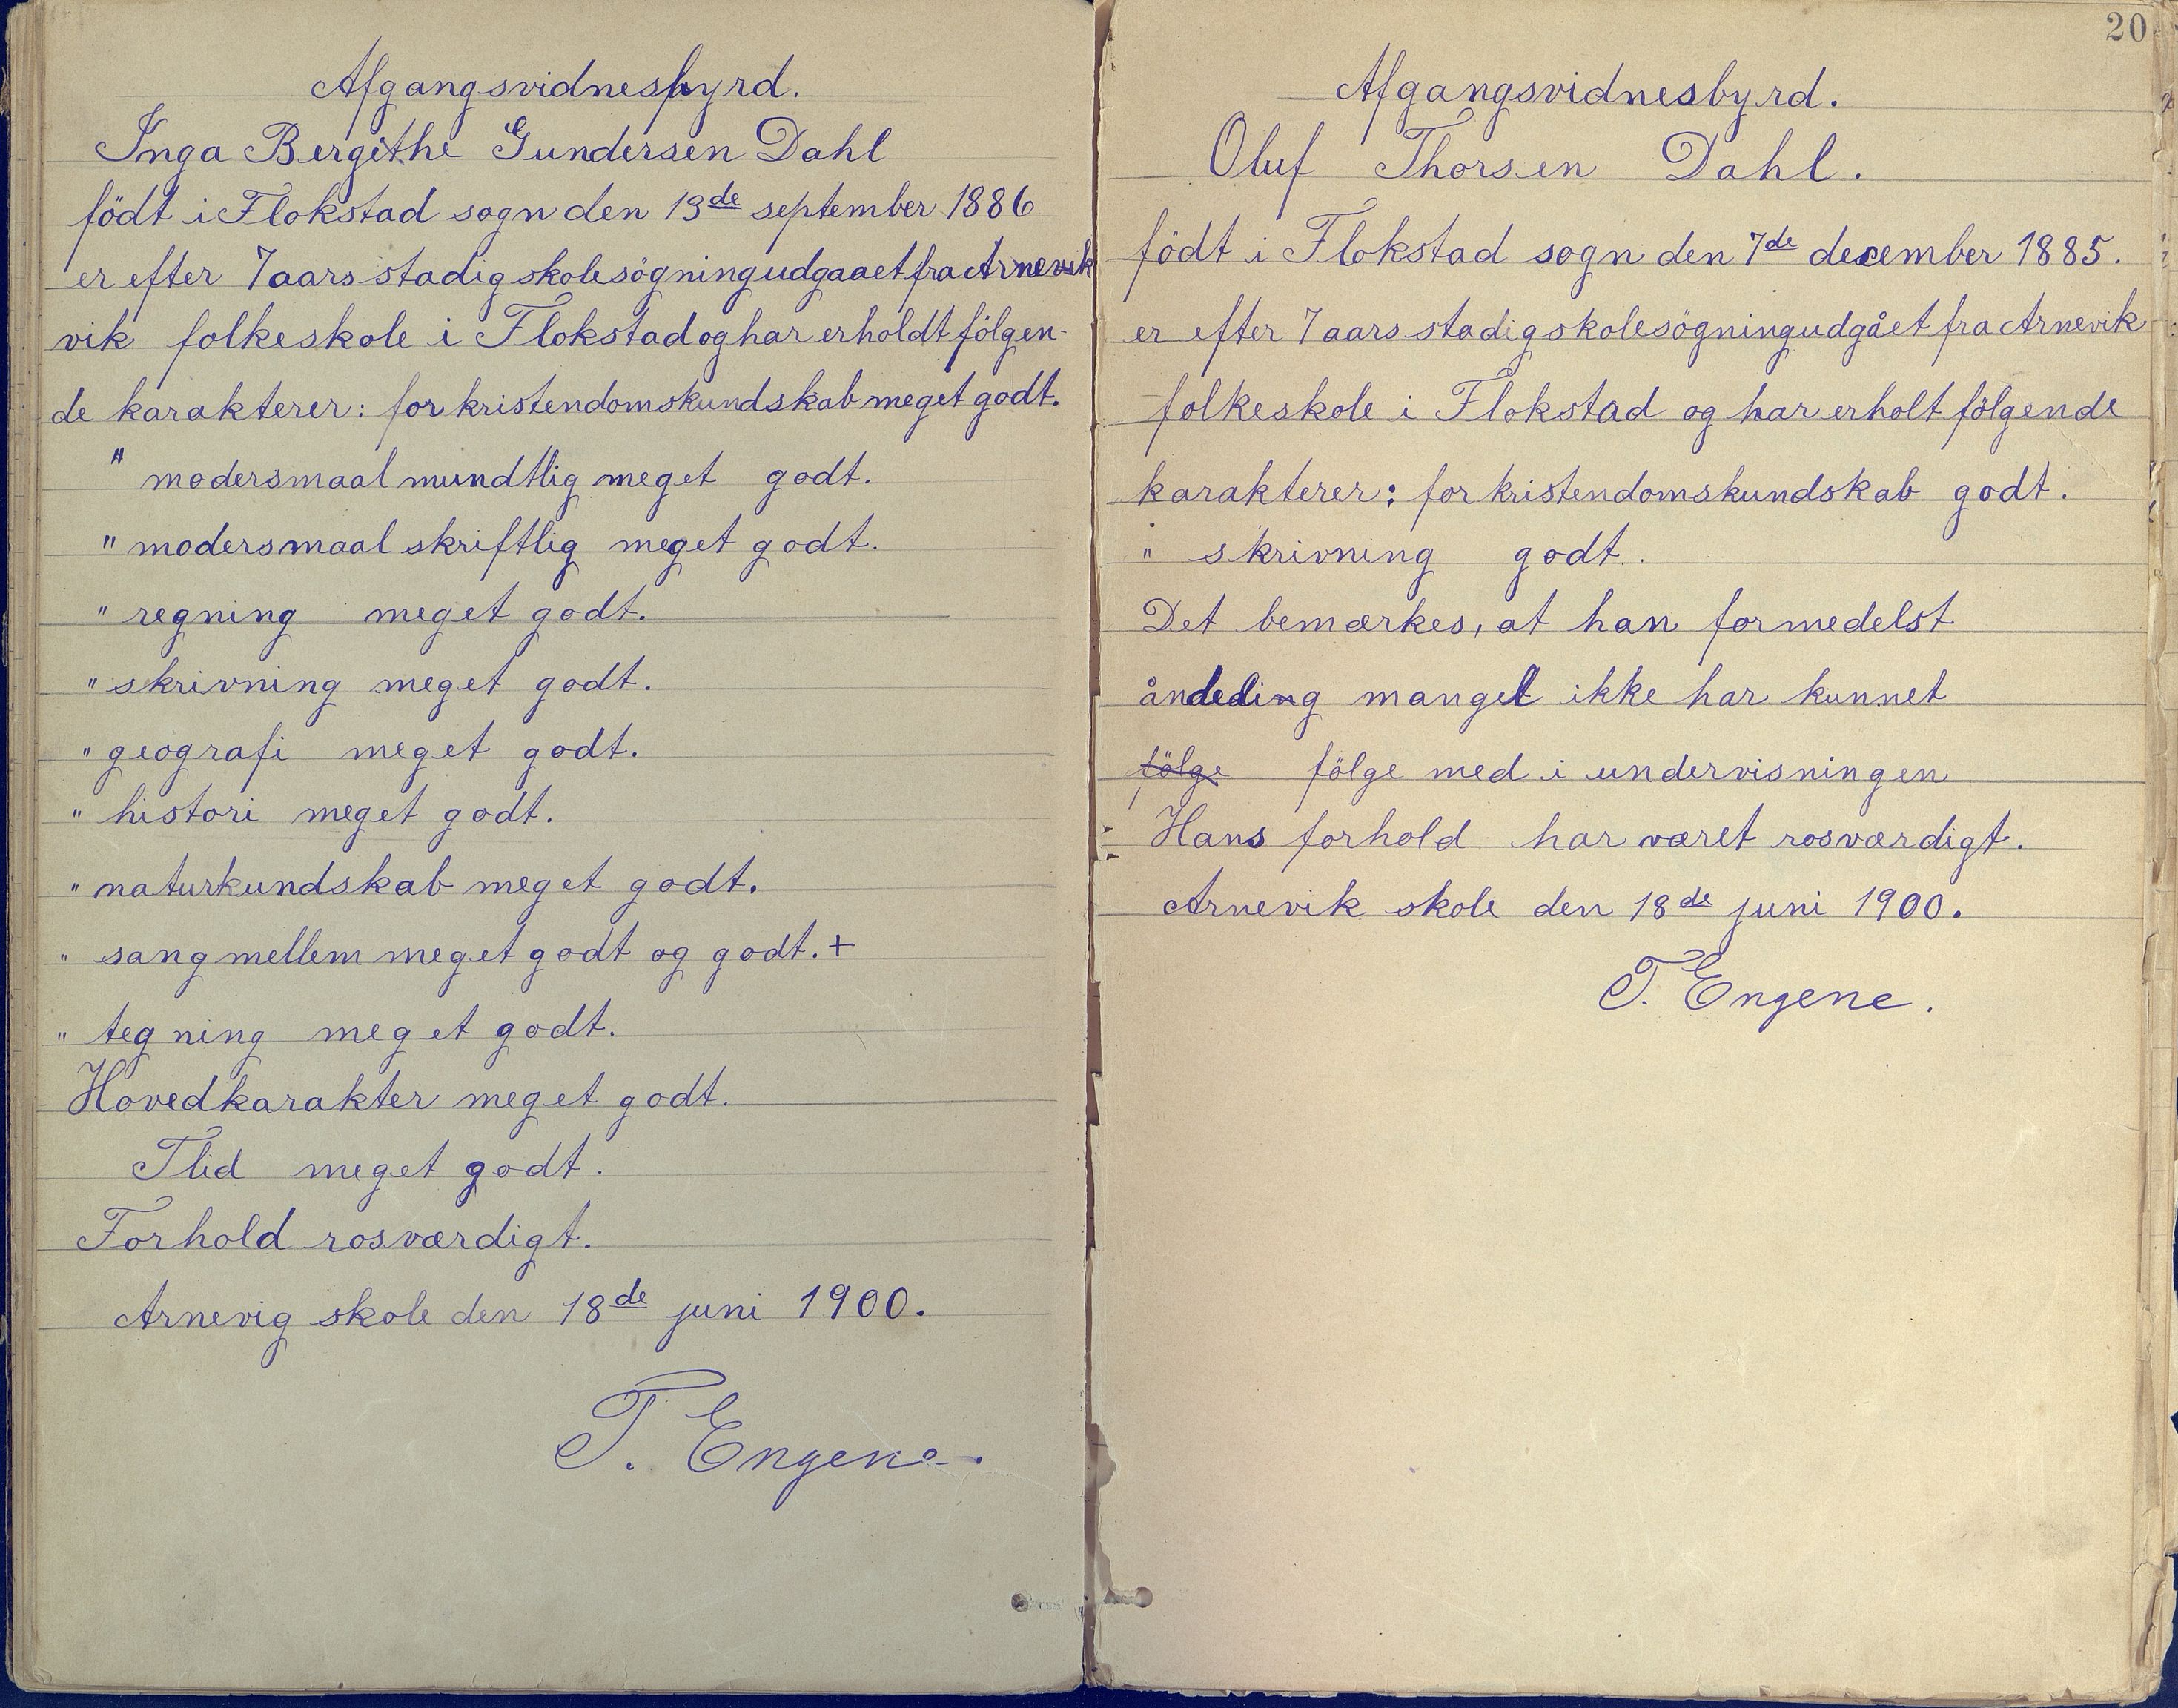 Afgangsvidnesbyrd.
Inga Bergithe Gundersen Dahl
födt i Flokstad sogn den 13de september 1886
er efter 7 aars stadig skolesögning udgaaet fra Arnevik
vik folkeskole i Flokstad og har erholdt fölgen-
de karakterer: for kristendomskundskab meget godt.
" modersmaal mundtlig meget godt.
" modersmaal skriftlig meget godt.
" regning meget godt.
" skrivning meget godt.
" geografi meget godt.
" histori meget godt.
" naturkundskab meget godt.
" sang mellem meget godt og godt. +
" tegning meget godt.
Hovedkarakter meget godt.
Flid meget godt.
Forhold rosværdigt.
Arnevig skole den 18de juni 1900.
T. Engene.
20
Afgangsvidnesbyrd.
Oluf Thorsen Dahl.
födt i Flokstad sogn den 7de december 1885.
er efter 7 aars stadig skolesögning udgået fra Arnevik
folkeskole i Flokstad og har erholt fölgende
karakterer: for kristendomskundskab godt.
" skrivning godt.
Det bemærkes, at han formedelst
mangel ikke har kunnet
fölge fölge med i undervisningen
Hans forhold har været rosværdigt.
Arnevik skole den 18de juni 1900.
T. Engene.